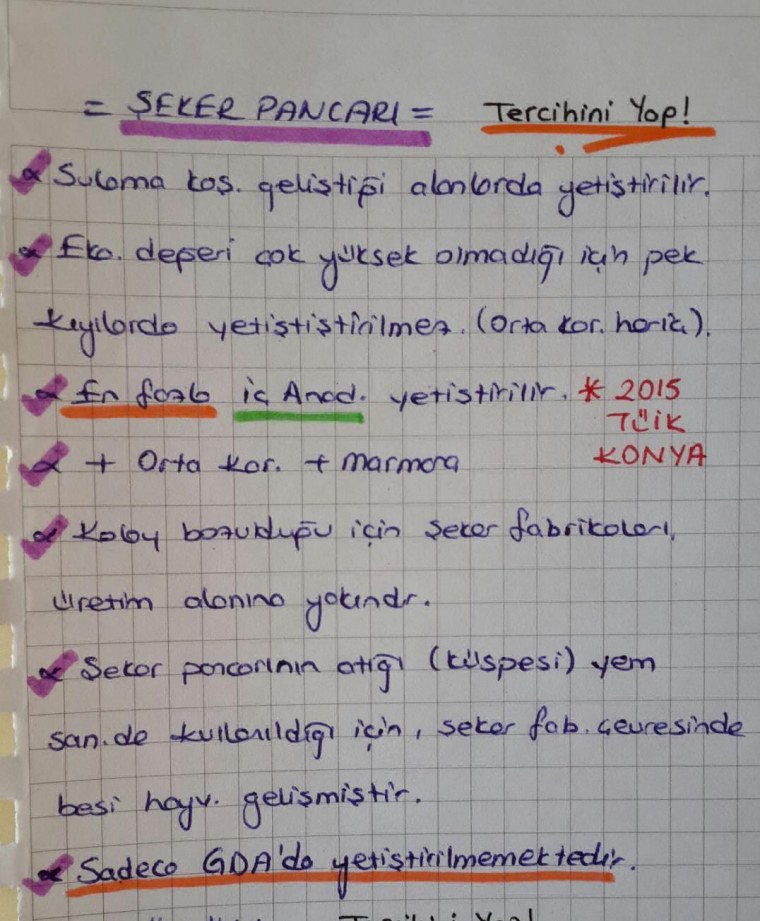 = ŞEKER PANCARI = Tercihini Yap!
Sulama koş. geliştiği alanlarda yetiştirilir.
Eko. değeri çok yüksek olmadığı için pek
kıyılarda yetiştiştirilmez. (Orta kar. hariç).
En fazla iç Anad. yetiştirilir. * 2015
TÜİK
+ Orta Kar. + marmara KONYA
Kolay bozulduğu için şeker fabrikaları,
üretim alanına yakındır.
Şeker pancarının atığı (küspesi) yem
san.de kullanıldığı için, şeker fab. çevresinde
besi hayv. gelişmiştir.
Sadece GDA'da yetiştirilmemektedir.